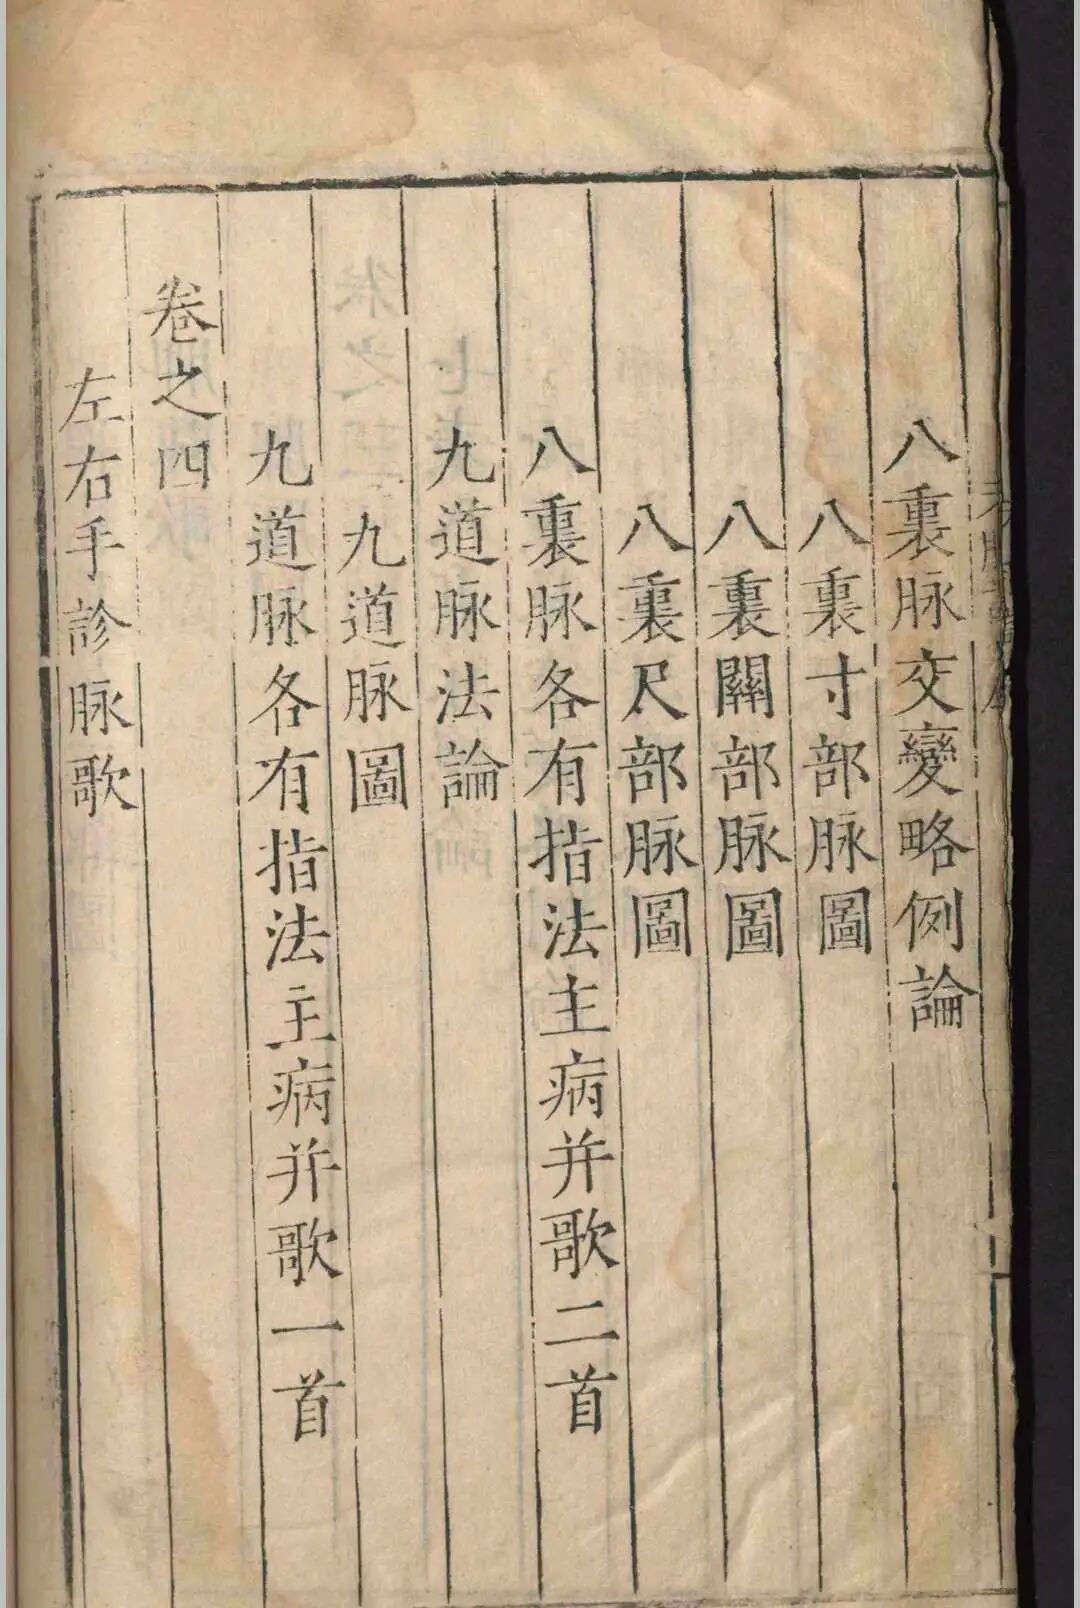 八裏脉交變略例論
八裏寸部脉圖
八裏關部脉圖
八裏尺部脉圖
八裏脉各有指法主病并歌二首
九道脉法論
九道脉圖
九道脉各有指法主病并歌一首
卷之四
左右手診脉歌